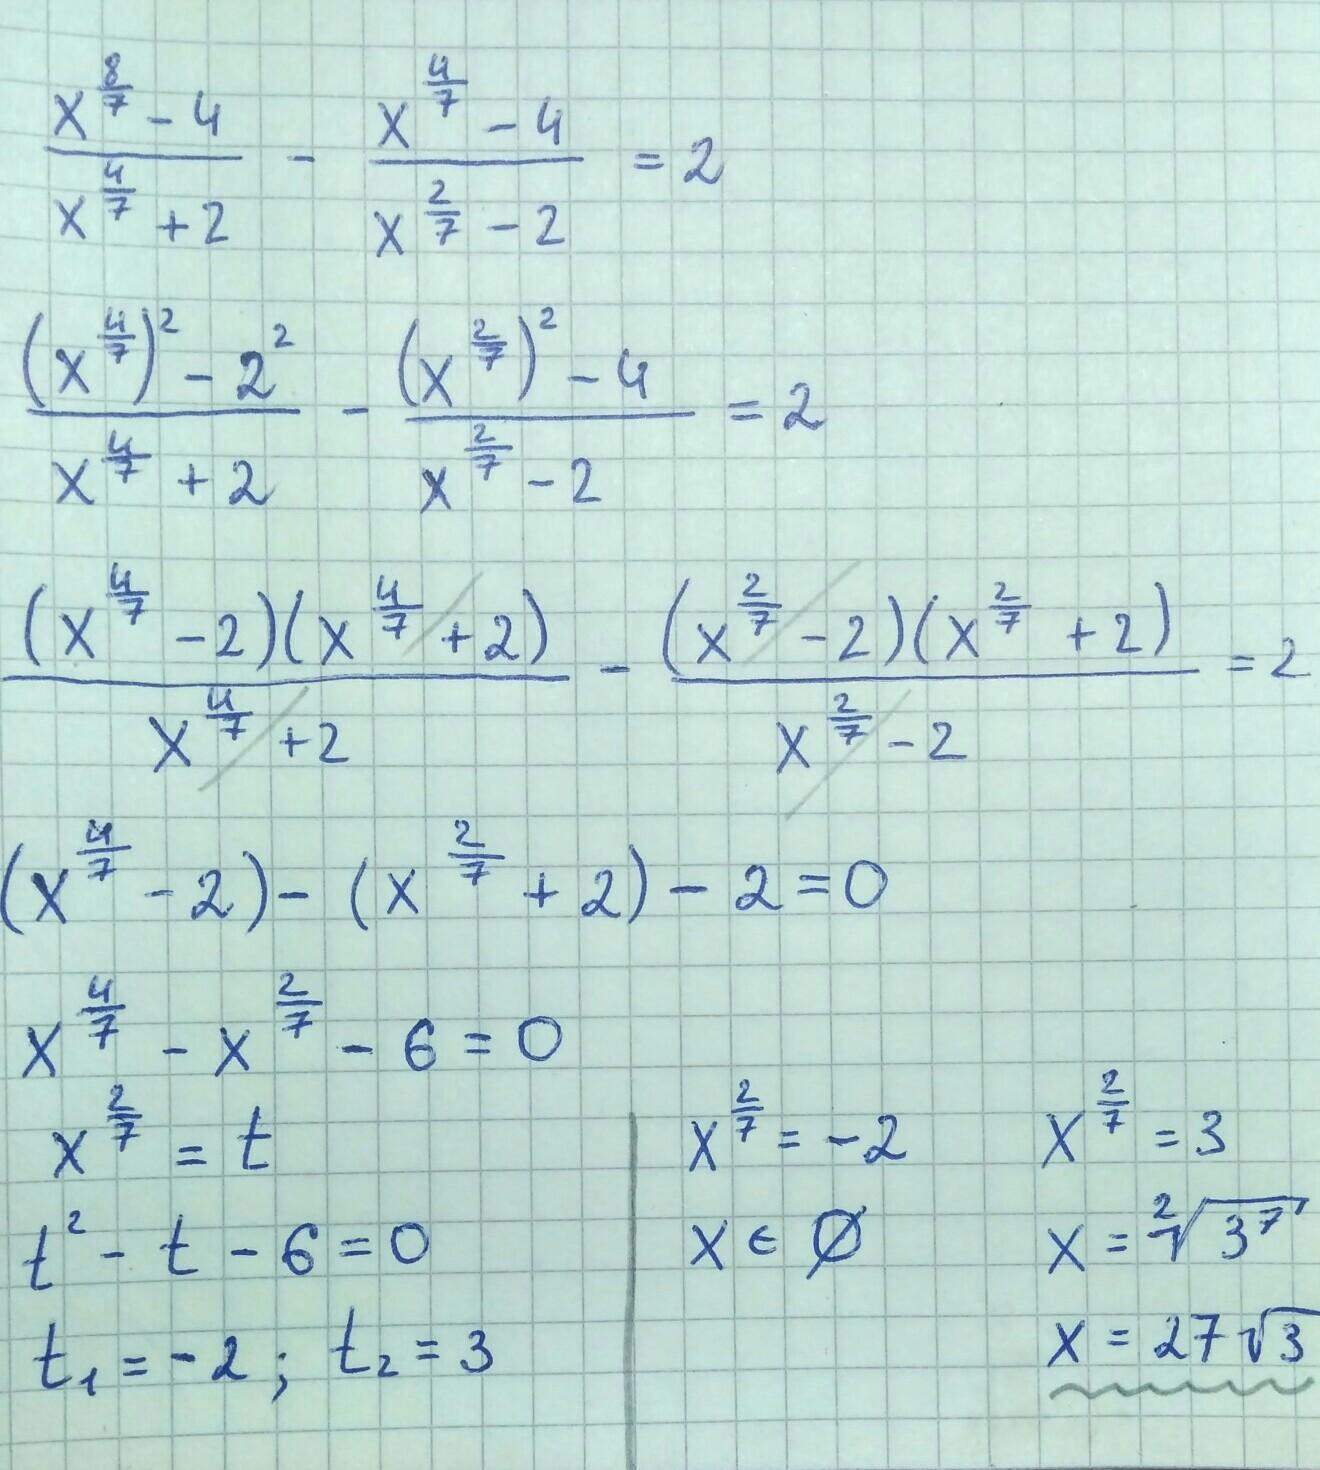 (x^(8/7) - 4)/(x^(4/7) + 2) - (x^(4/7) - 4)/(x^(2/7) - 2) = 2
((x^(4/7))^2 - 2^2)/(x^(4/7) + 2) - ((x^(2/7))^2 - 4)/(x^(2/7) - 2) = 2
((x^(4/7) - 2)(x^(4/7) + 2))/(x^(4/7) + 2) - ((x^(2/7) - 2)(x^(2/7) + 2))/(x^(2/7) - 2) = 2
(x^(4/7) - 2) - (x^(2/7) + 2) - 2 = 0
x^(4/7) - x^(2/7) - 6 = 0
x^(2/7) = t
t^2 - t - 6 = 0
t₁ = -2 ; t₂ = 3
x^(2/7) = -2
x ∈ Ø
x^(2/7) = 3
x = ²√(3^7)
x = 27√3